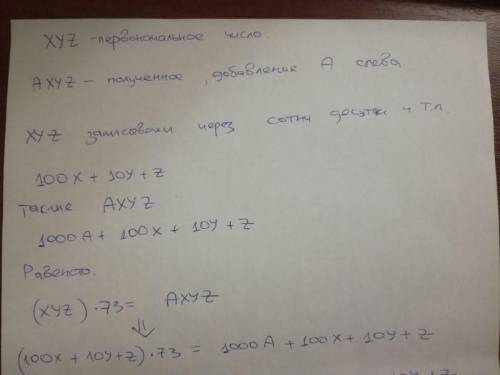 XYZ - первономальное число.
AXYZ - полученное, добавление A слева
XYZ записовахи через сотни десутки и т.п.
100X + 10Y + Z
также AXYZ
1000A + 100X + 10Y + Z
Равенство.
(XYZ) · 73 = AXYZ
⇓
(100X + 10Y + Z) · 73 = 1000A + 100X + 10Y + Z